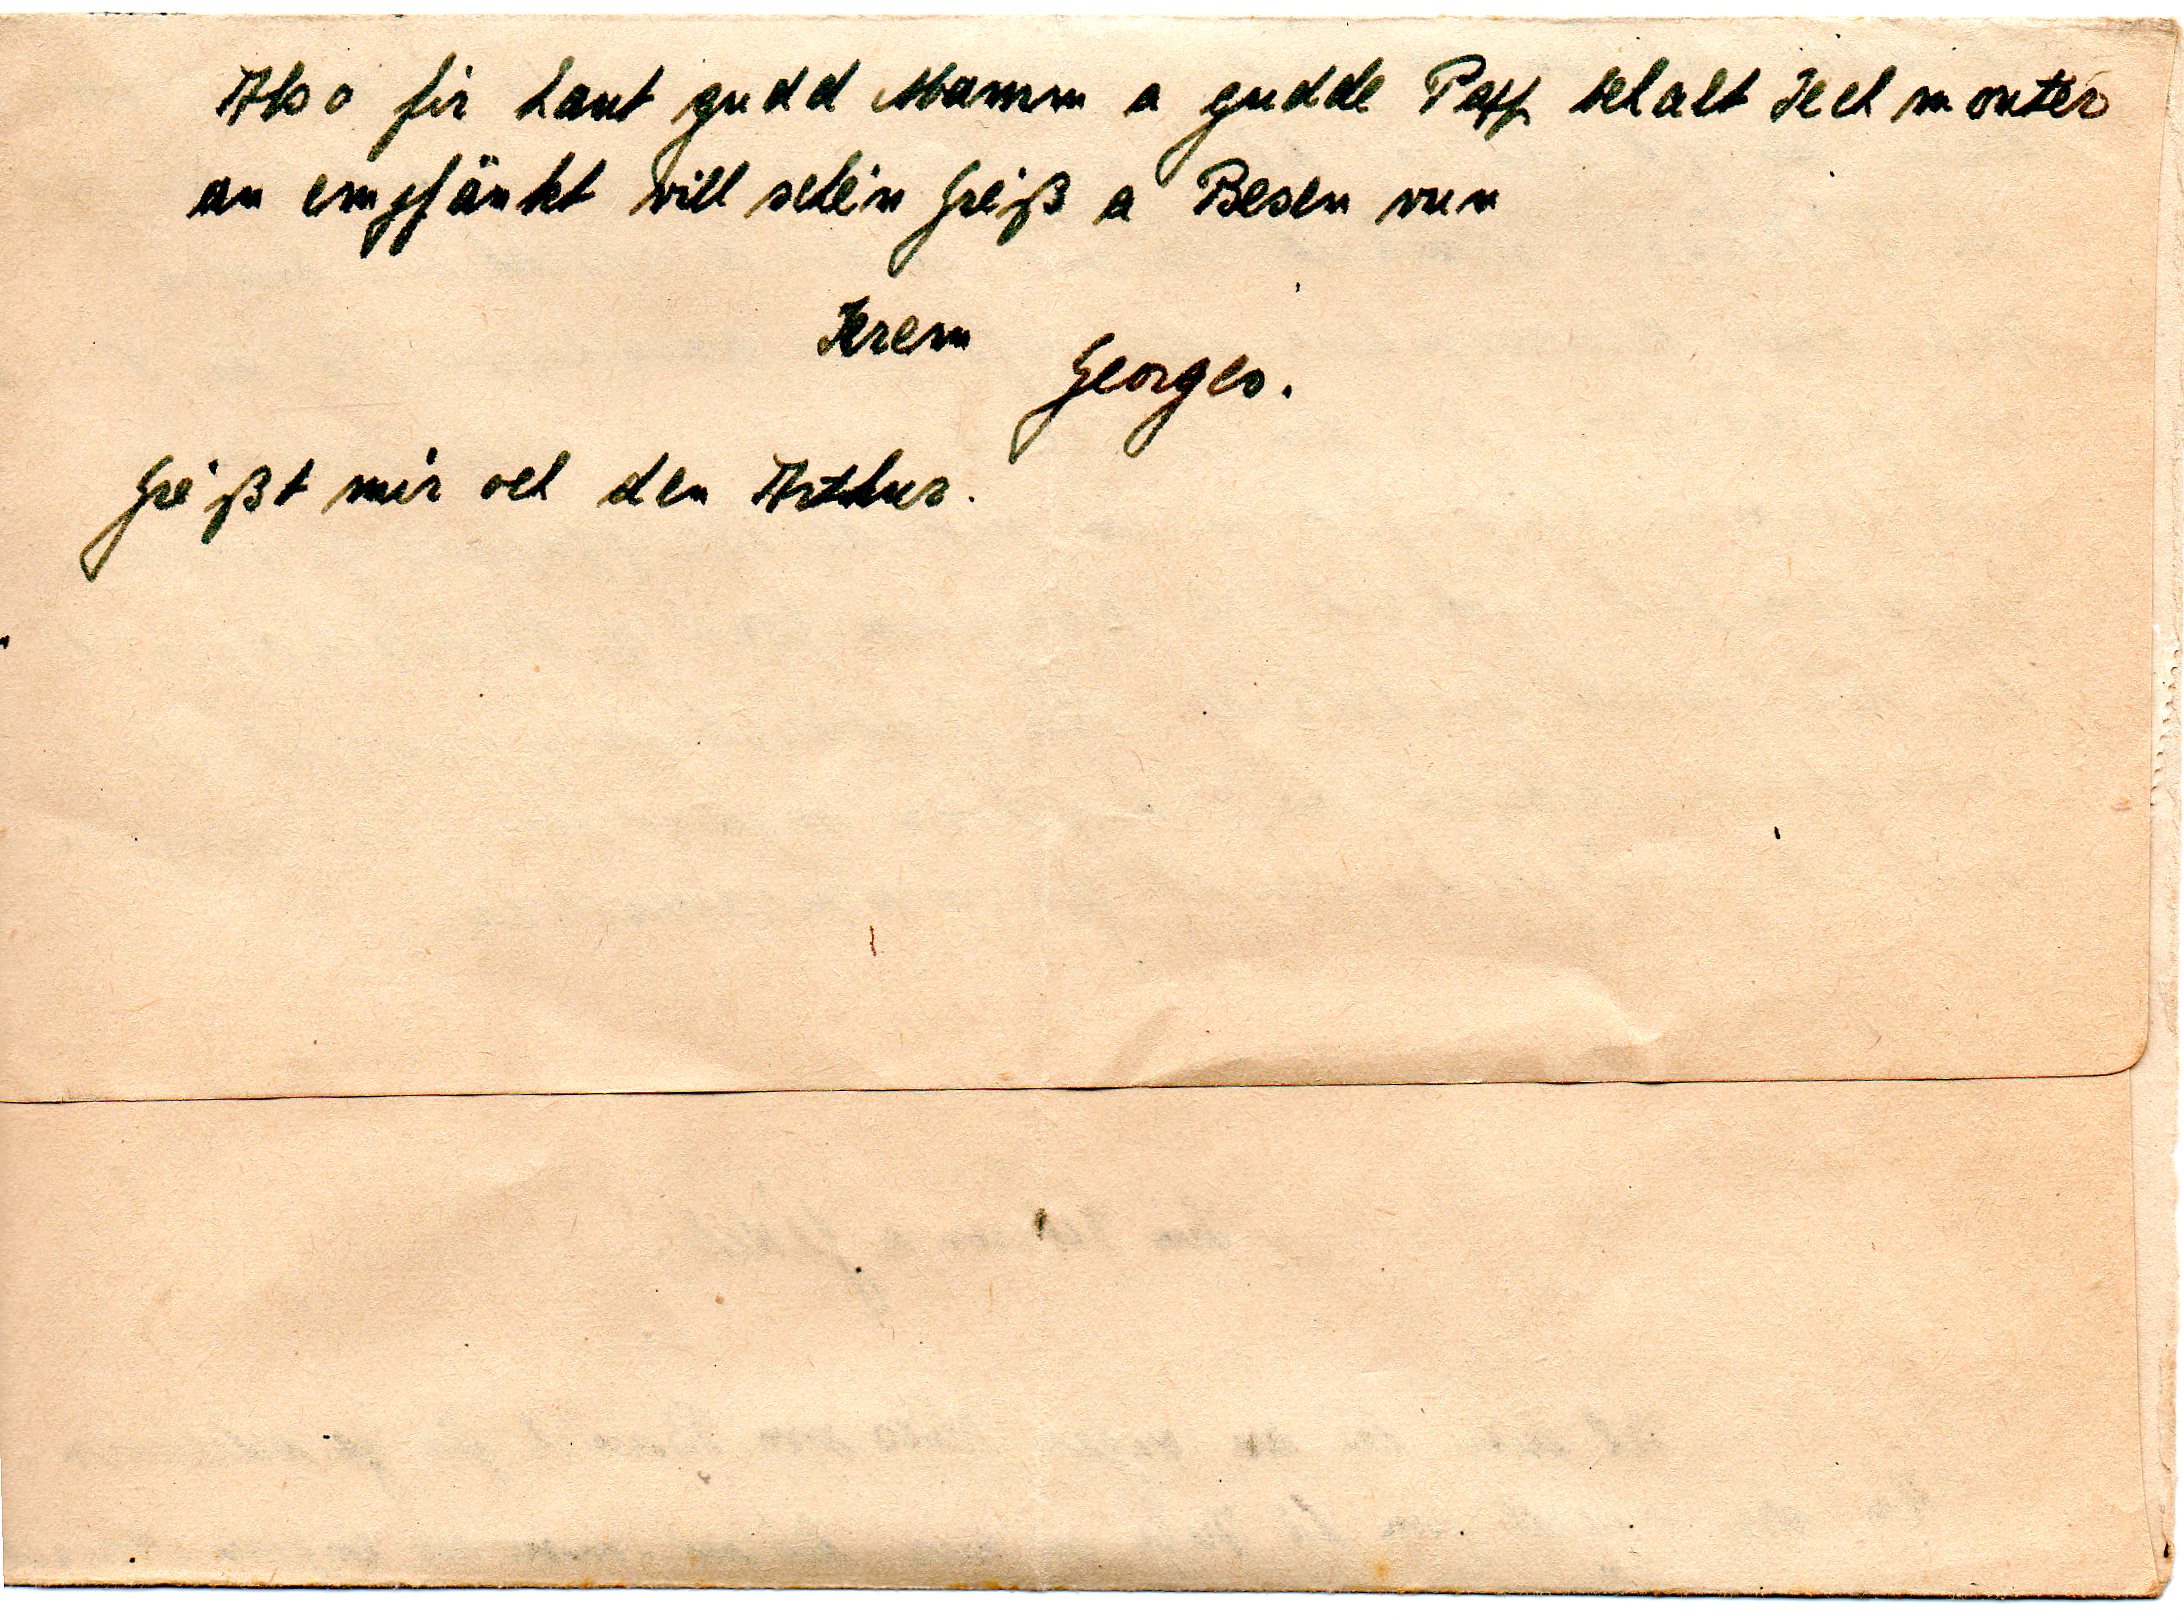 Also fir haut gudd Mamm a gudde Papp behalt Iech monter
an empfänkt vill schéin Gréiß a Besen vun
Ierem
Georges.
Gréißt mir och den Arthur.